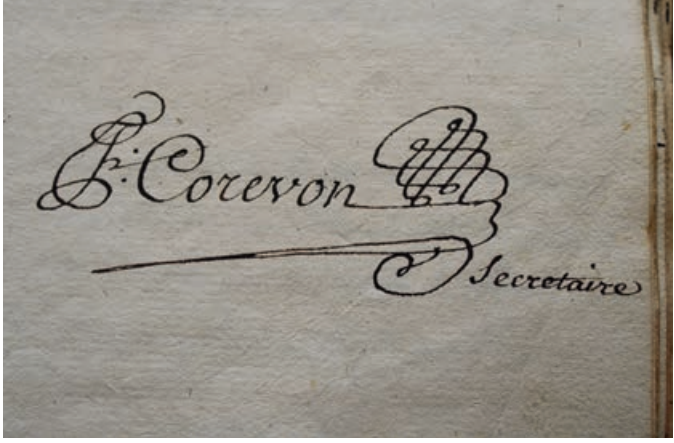 Corevon
Secretaire